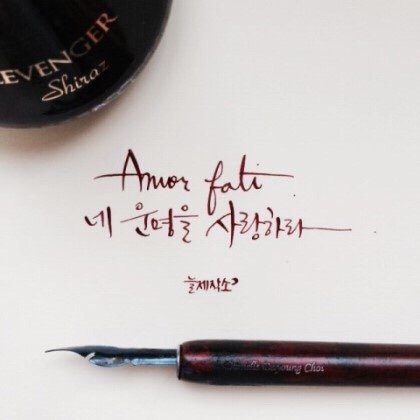 EVENGER
Shiraz
Amor fati
네 운명을 사랑하라
늘제작소
Choi